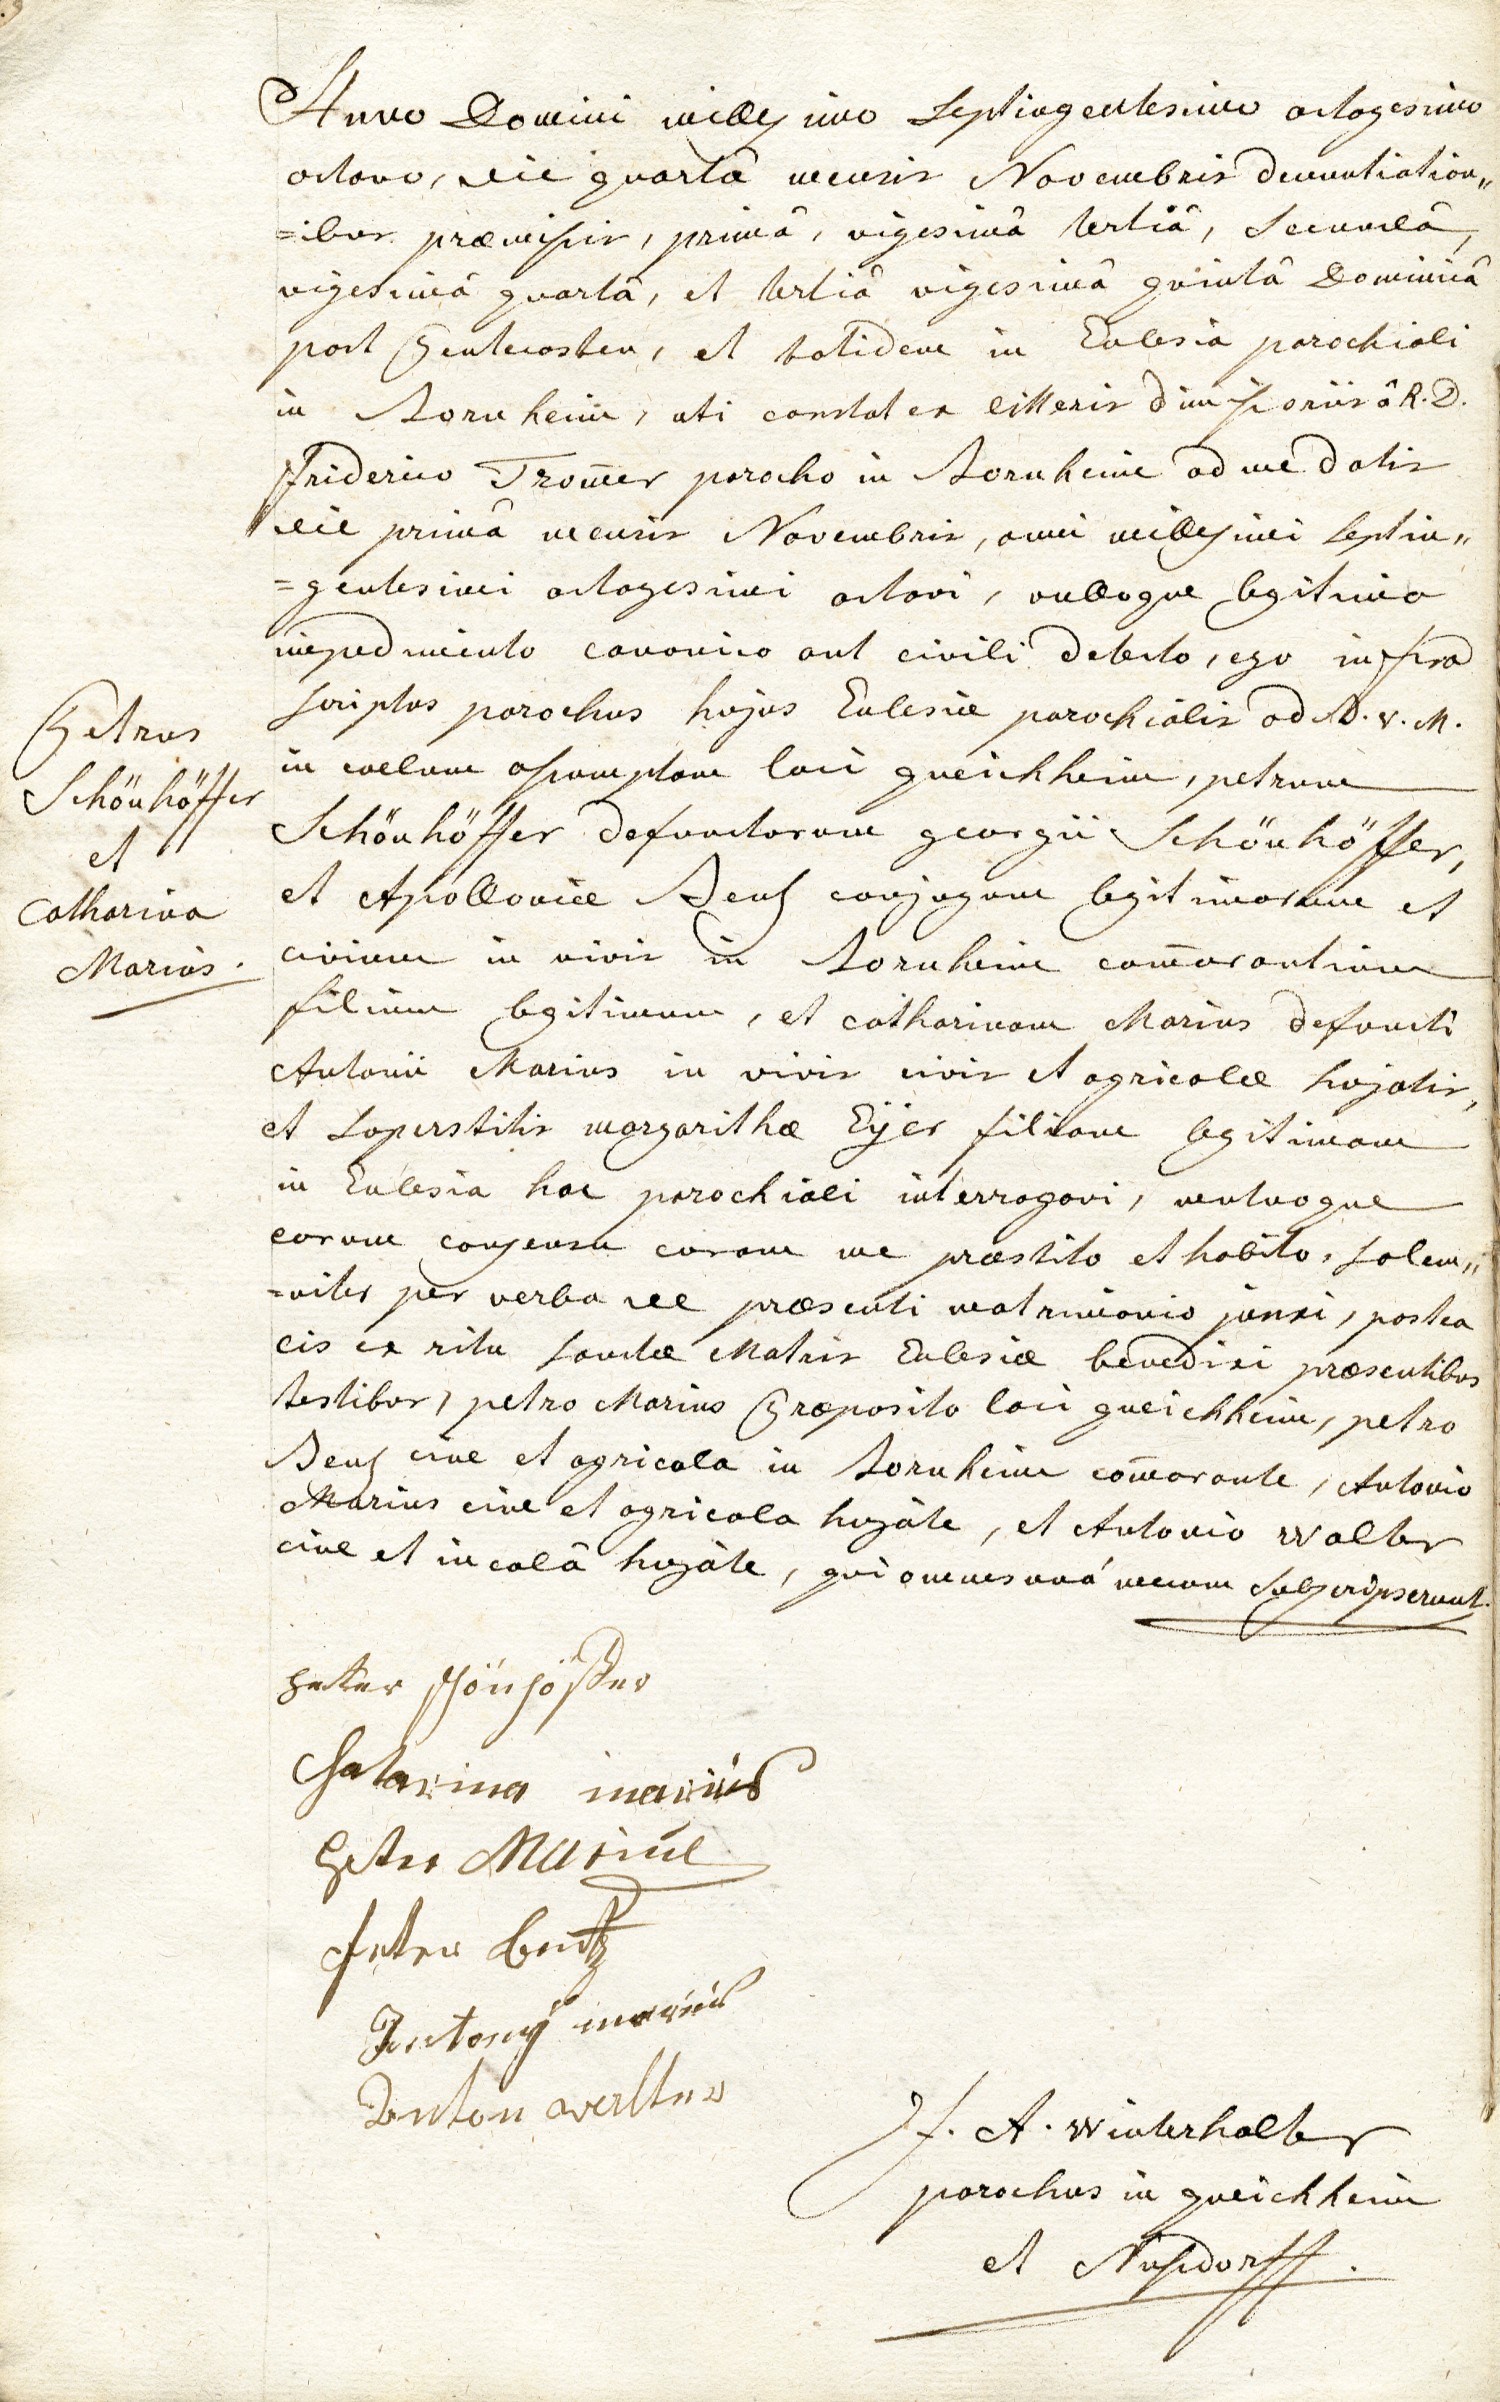 Anno Domini millesimo Septingentesimo octogesimo
octavo, die quartâ mensis Novembris denuntiation„
=ibus præmissis, primâ, vigesimâ tertiâ, Secundâ,
vigesimâ quartâ, et tertiâ vigesimâ quintâ Dominicâ
post Pentecosten, et totidem in Ecclesia parochiali
in Bornheim, uti constat ex litteris dimissoriis â R. D.
Friderico Trom̄er parocho in Bornheim ad me datis
die primâ mensis Novembris, anni millesimi Septin„
=gentesimi octogesimi octavi, nulloque legitimo
impedimento canonico aut civili detecto, ego infra
scriptus parochus hujus Ecclesiæ parochialis ad B. V. M.
in coelum assumptam loci queichheim, petrum
Schönhöffer defunctorum georgii Schönhöffer,
et Apolloniæ Benz conjugum legitimorum et
civium in vivis in Bornheim com̄orantium
filium legitimum, et catharinam Marius defuncti
Antonii Marius in vivis civis et agricolæ hujatis,
et Superstitis margarithæ Eÿer filiam legitimam
in Ecclesia hac parochiali interrogavi, mutuoque
eorum consensu coram me præstito et habito, Solem„
=niter per verba de præsenti matrimonio junxi, postea
eis ex ritu Sanctæ Matris Ecclesiæ benedixi præsentibus
testibus, petro Marius Præposito loci queichheim, petro
Benz cive et agricola in Bornheim com̄orante, Antonio
Marius cive et agricola hujate, et Antonio Walter
cive et incolâ hujate, qui omnes unâ mecum Subscripserunt.
Petrus
Schönhöffer
et
Catharina
Marius.
petter schönhöffer
Chatarina marius
Peter Marius
peter bentz
Antonÿ marius
Anton walter
J. A. Winterhalter
parochus in queichheim
et Nussdorff.